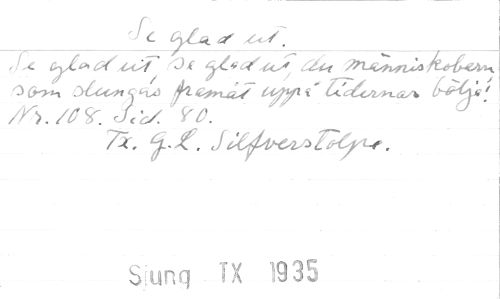 Se glad ut.
Se glad ut, se glad ut, du människobarn
som slungas framåt uppå tidernas bölja!
Nr. 108. Sid. 80.
Tx. G. L. Silfverstolpe.
Sjung TX 1935